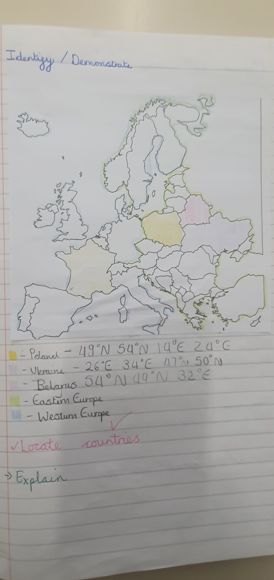 Identify / Demonstrate
- Poland - 49°N 54°N 14°E 24°E
- Ukraine - 26°E 34°E 47°N 50°N
- Belarus 54°N 49°N 32°E
- Eastern Europe
- Western Europe
✓Locate countries
→ Explain